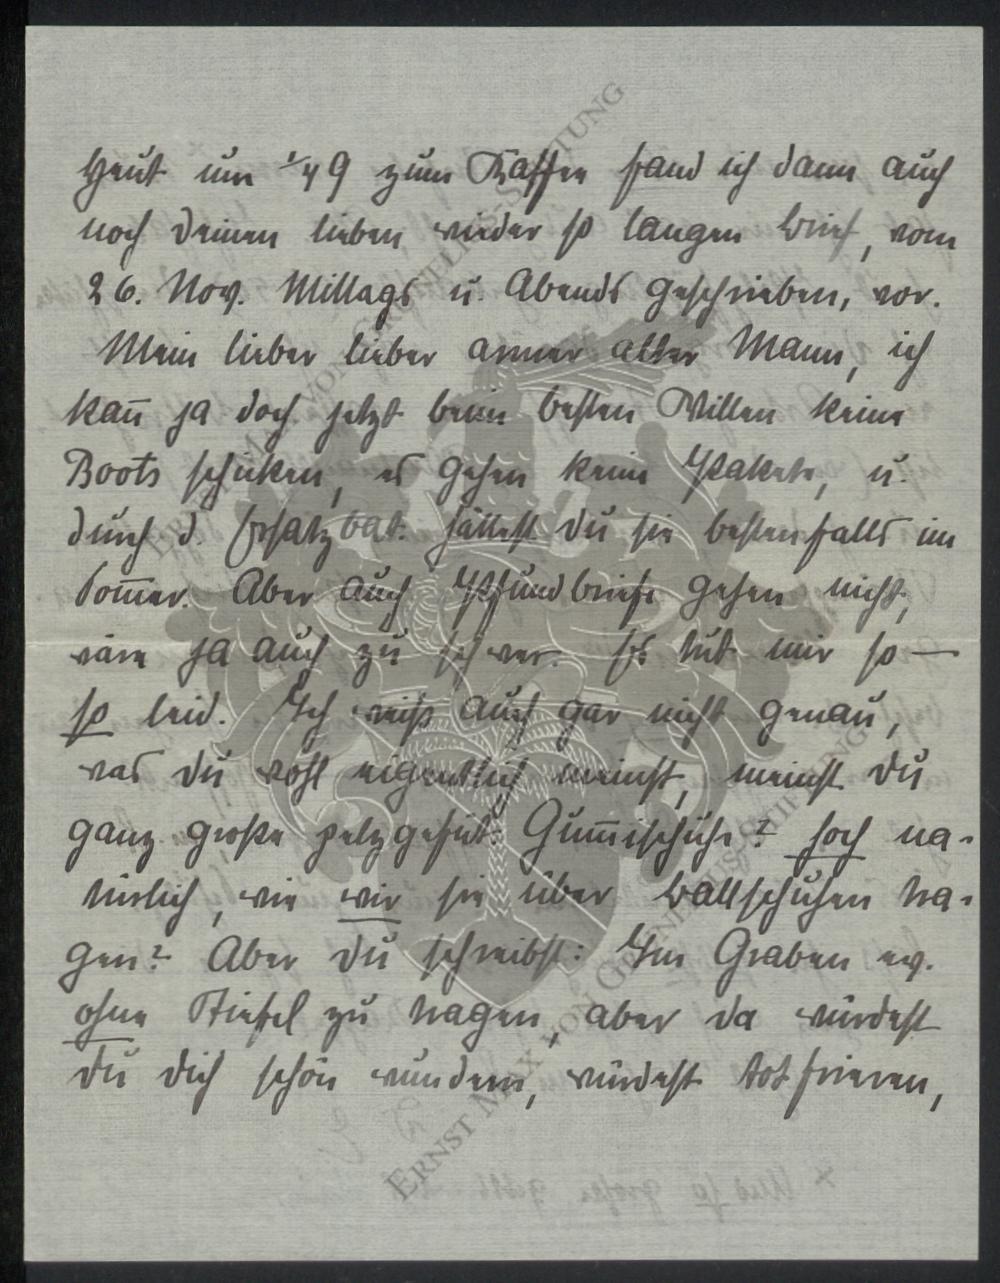 Heut um 1/4 9 zum Kaffee fand ich dann auch
noch deinen lieben, wieder so langen Brief, vom
26. Nov. Mittags u. Abends geschrieben, vor.
Mein lieber lieber armer alter Mann, ich
kan̄ ja doch jetzt beim besten Willen keine
Boots schicken, es gehen keine Pakete, u.
durch d. Ersatzbat. hättest du sie bestenfalls im
Som̄er. Aber auch Pfundbriefe gehen nicht,
wäre ja auch zu schwer. Es tut mir so —
so leid. Ich weiß auch gar nicht genau,
was du wohl eigentlich meinst, meinst du
ganz große pelzgefüt. Gum̄ischuhe? hoch na-
türlich, wie wir sie über Ballschuhen tra-
gen? Aber du schreibst: Im Graben ev.
ohne Stiefel zu tragen, aber da würdest
du dich schön wundern, würdest tot frieren,
ERNST MAX VON GRENDELIUS-STIFTUNG
ERNST MAX VON GRENDELIUS-STIFTUNG